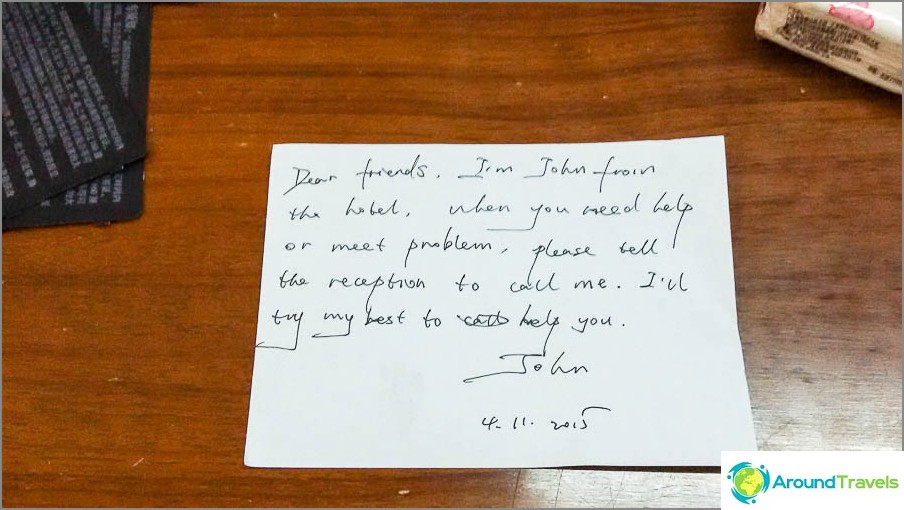 Dear friends. I'm John from
the hotel. When you need help
or meet problem, please tell
the reception to call me. I'll
try my best to call help you.
John
4. 11. 2015
AroundTravels